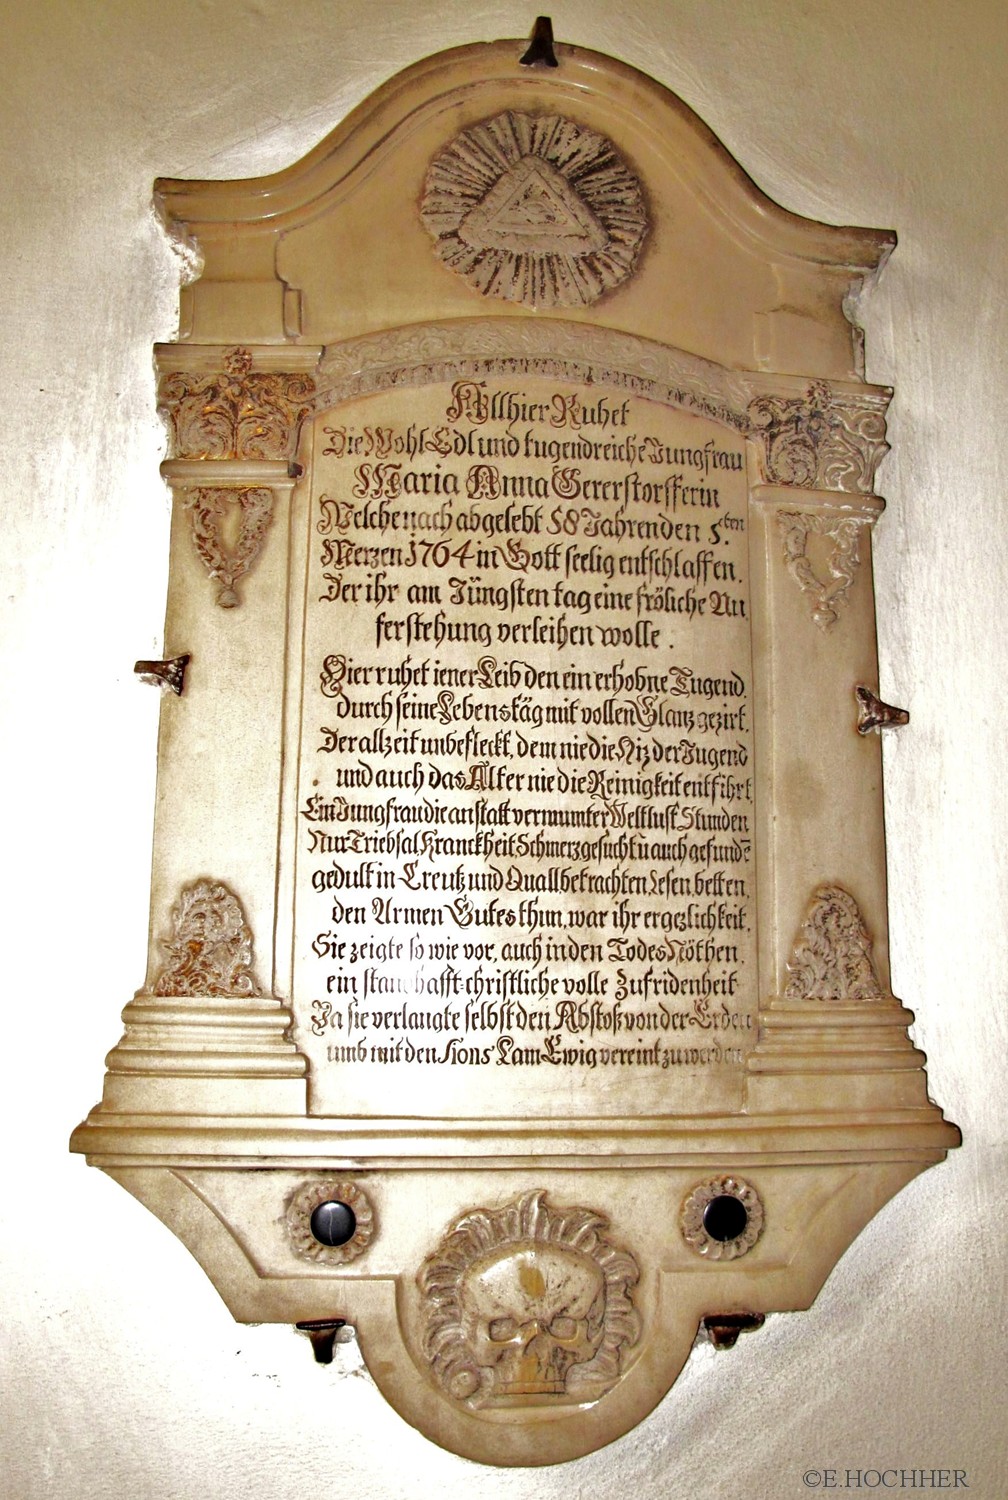 Allhier Ruhet
Die Wohl Edl und tugendreiche Jungfrau
Maria Anna Gererstorfferin
Welche nach abgelebt 58 Jahren den 5.ten
Merzen 1764 in Gott seelig entschlaffen.
Der ihr am Jüngsten tag eine fröliche Au
ferstehung verleihen wolle.
Hier ruhet iener Leib den ein erhobne Tugend.
durch seine Lebenstäg mit vollen Glanz gezirt.
Der allzeit unbefleckt, dem nie die Hiz der Jugend
und auch das Alter nie die Reinigkeit entführt
Ein Jungfrau die anstatt vermumter Weltlust Stunden
Nur Triebsal, Kranckheit, Schmerz gesucht ū auch gefundē
gedult in Creutz und Quall betrachten, lesen, betten,
den Armen Gutes thun, war ihr ergezlichkeit,
Sie zeigte so wie vor, auch in den Todes Nöthen,
ein standhafft-christliche volle Zufridenheit
Ja sie verlangte selbst den Abstoß von der Erden
umb mit den Sions Lam Ewig vereint zu werden
©E.HOCHHER